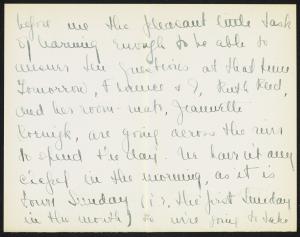 before me the pleasant little task
of learning enough to be able to
answer the questions at that time
Tomorrow, Frances & I, Ruth Reed,
and her room-mate, Jeannette
are going across the river
to spend the day. We have n't any
chapel in the morning, as it is
Town Sunday (i.e., the first Sunday
in the month) so we're going to take